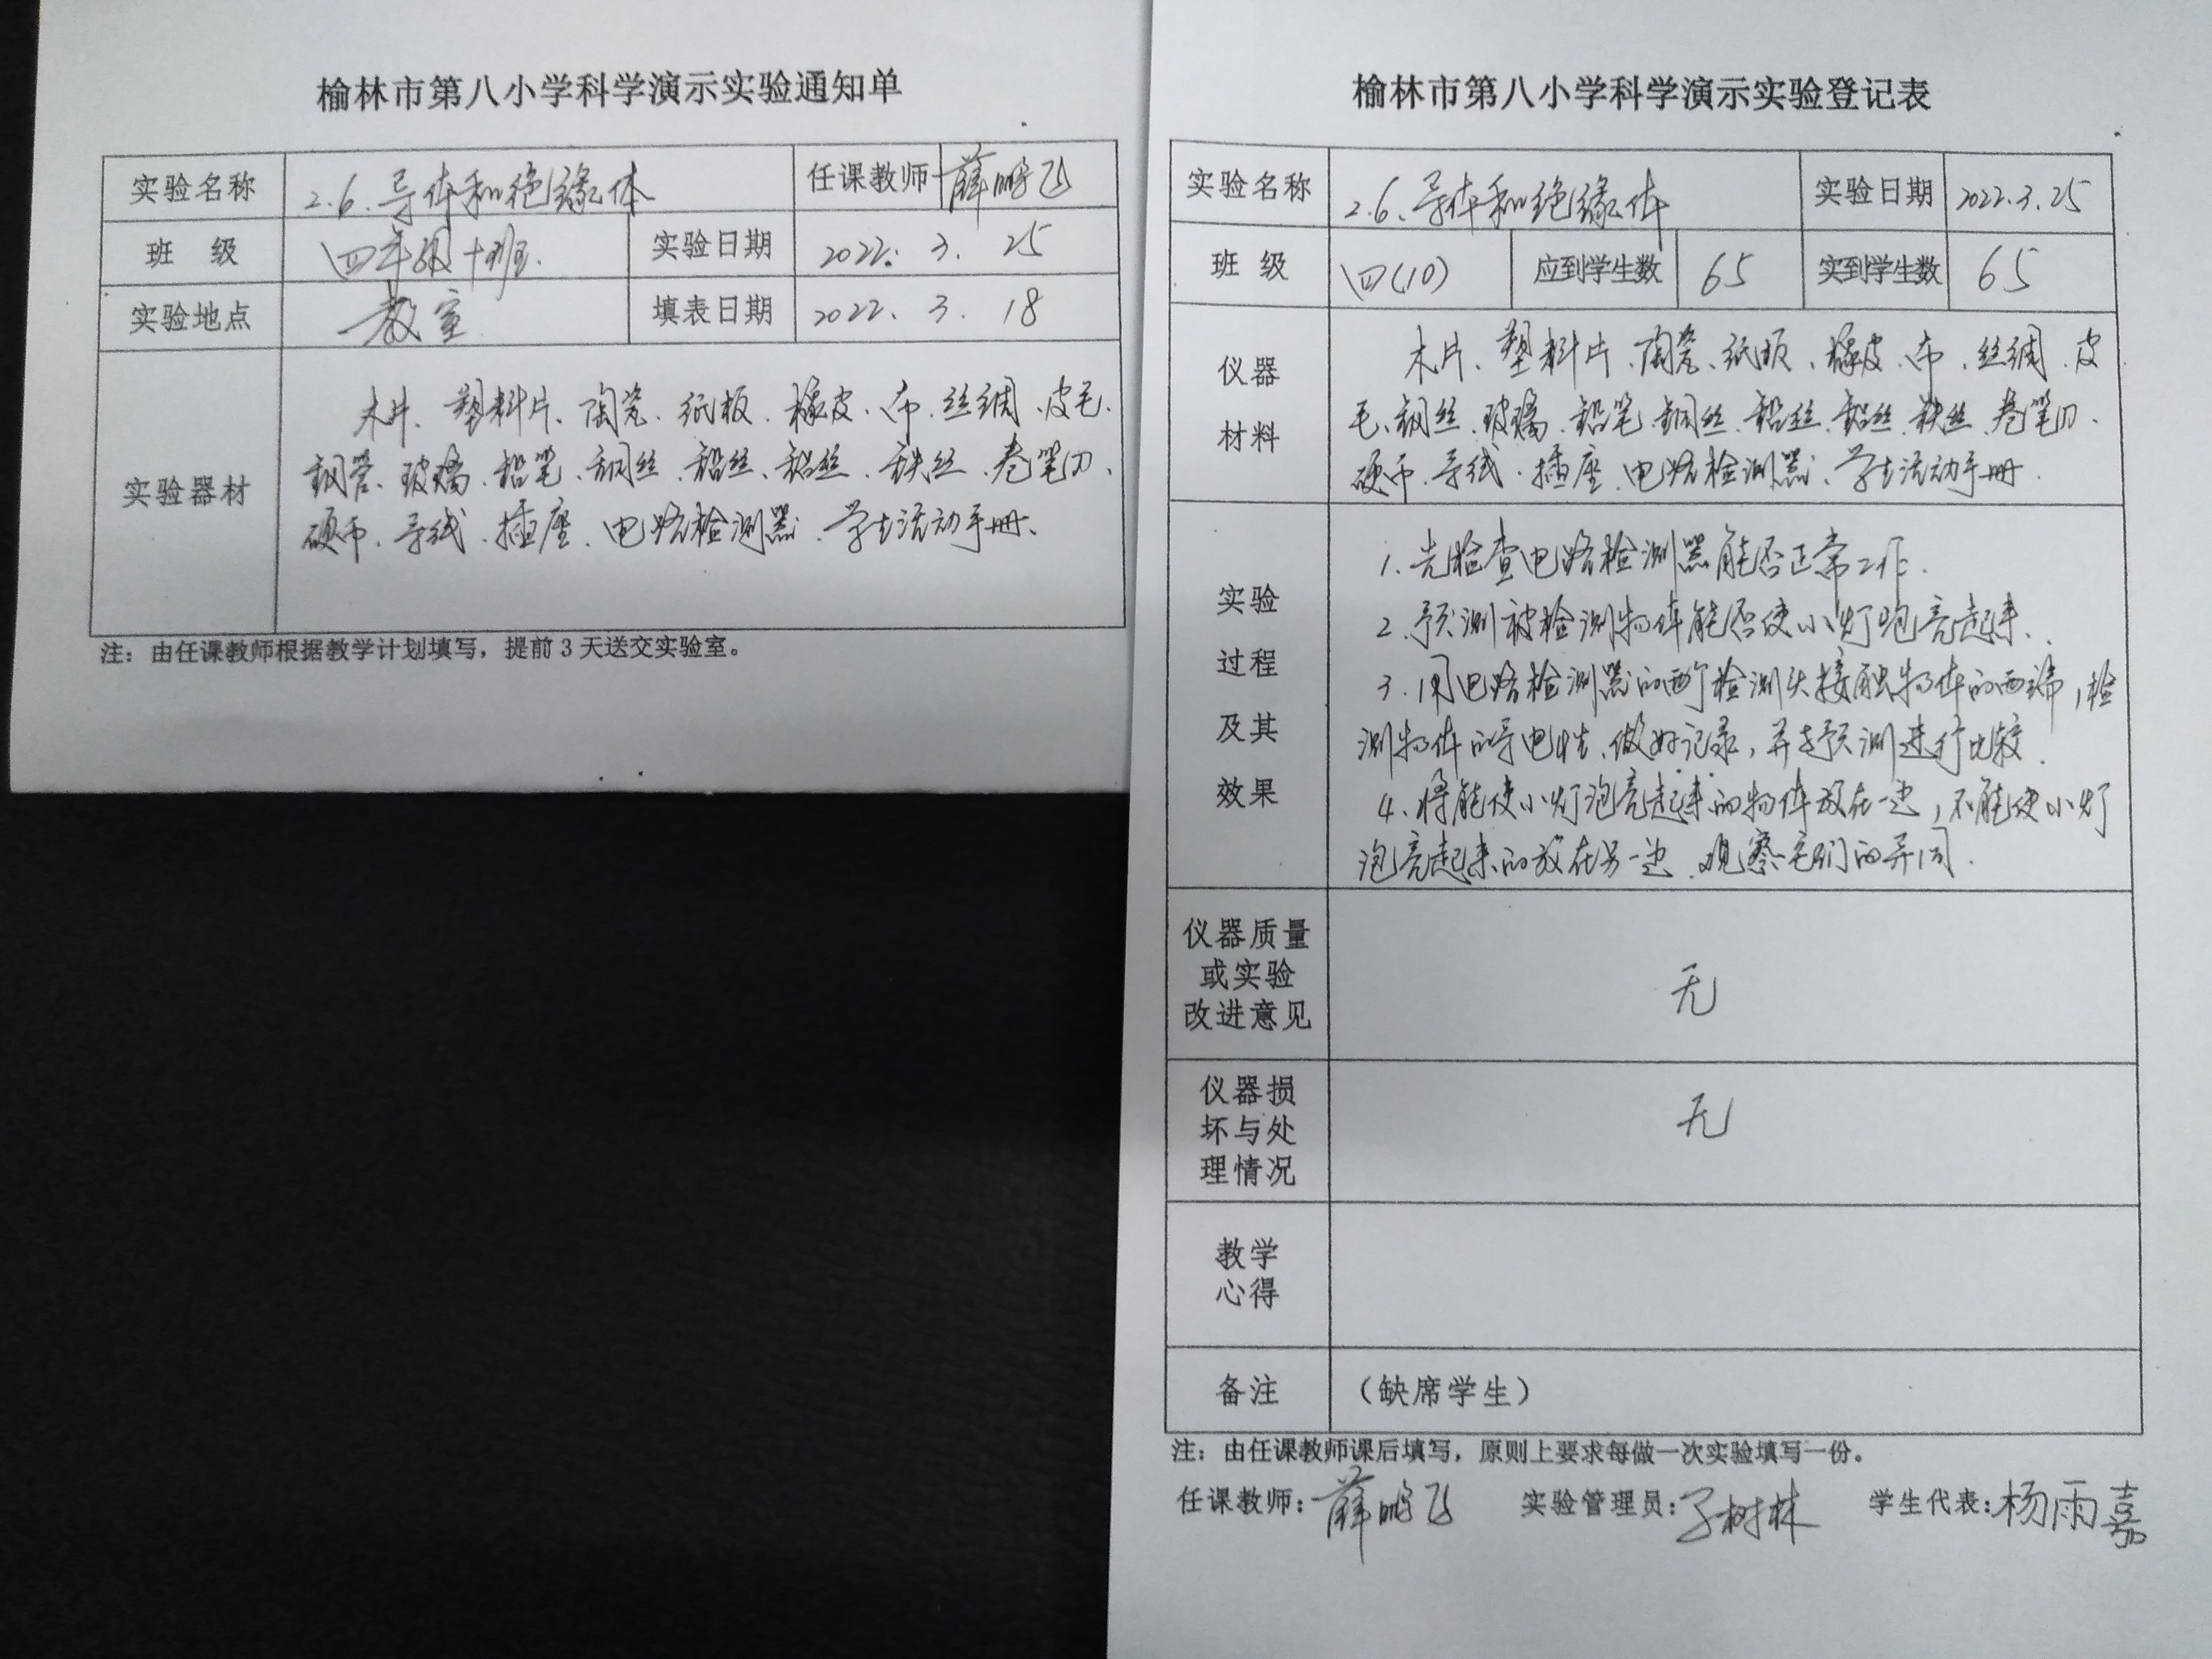 榆林市第八小学科学演示实验通知单
实验名称 2.6.导体和绝缘体 任课教师 薛鹏飞
班 级 四年级十班. 实验日期 2022. 3. 25
实验地点 教室 填表日期 2022. 3. 18
实验器材
木片、塑料片、陶瓷、纸板、橡皮、布、丝绸、皮毛、
钢管、玻璃、铅笔、铜丝、铅丝、铝丝、铁丝、卷笔刀、
硬币、导线、插座、电路检测器、学生活动手册、
注：由任课教师根据教学计划填写，提前3天送交实验室。
榆林市第八小学科学演示实验登记表
实验名称 2.6、导体和绝缘体 实验日期 2022.3.25
班 级 四(10) 应到学生数 65 实到学生数 65
仪器
材料
木片、塑料片、陶瓷、纸板、橡皮、布、丝绸、皮
毛、钢丝、玻璃、铅笔、铜丝、铅丝、铝丝、铁丝、卷笔刀、
硬币、导线、插座、电路检测器、学生活动手册.
实验
过程
及其
效果
1.先检查电路检测器能否正常工作.
2.预测被检测物体能否使小灯泡亮起来.
3.用电路检测器的两个检测头接触物体的两端，检
测物体的导电性、做好记录，并与预测进行比较.
4、将能使小灯泡亮起来的物体放在一边，不能使小灯
泡亮起来的放在另一边、观察它们的异同.
仪器质量
或实验
改进意见
无
仪器损
坏与处
理情况
无
教学
心得
备注 （缺席学生）
注：由任课教师课后填写，原则上要求每做一次实验填写一份。
任课教师：薛鹏飞 实验管理员：树林 学生代表：杨雨嘉